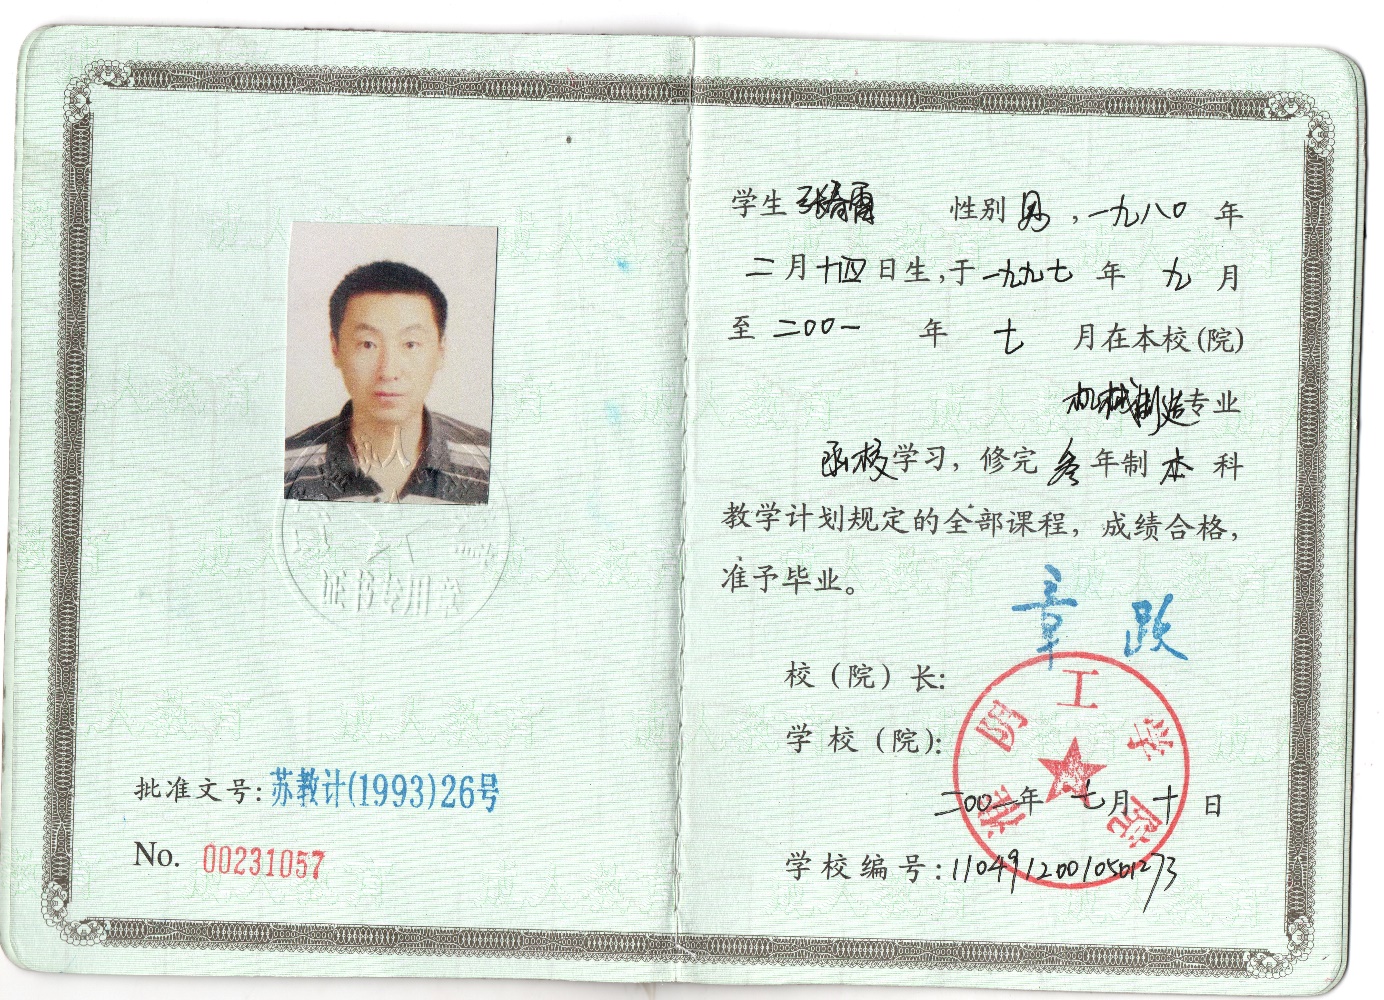 批准文号:苏教计(1993)26号
No. 00231057
证书专用章
学生 张春雨 性别 男,一九八〇 年
二月十四日生,于一九九七 年 九月
至 二〇〇一 年 七 月在本校(院)
机械制造专业
函授学习，修完 叁年制 本 科
教学计划规定的全部课程，成绩合格，
准予毕业。
章 跃
校（院）长:
学 校（院）:
淮阴工学院
二〇〇一年 七月 十 日
学校编号: